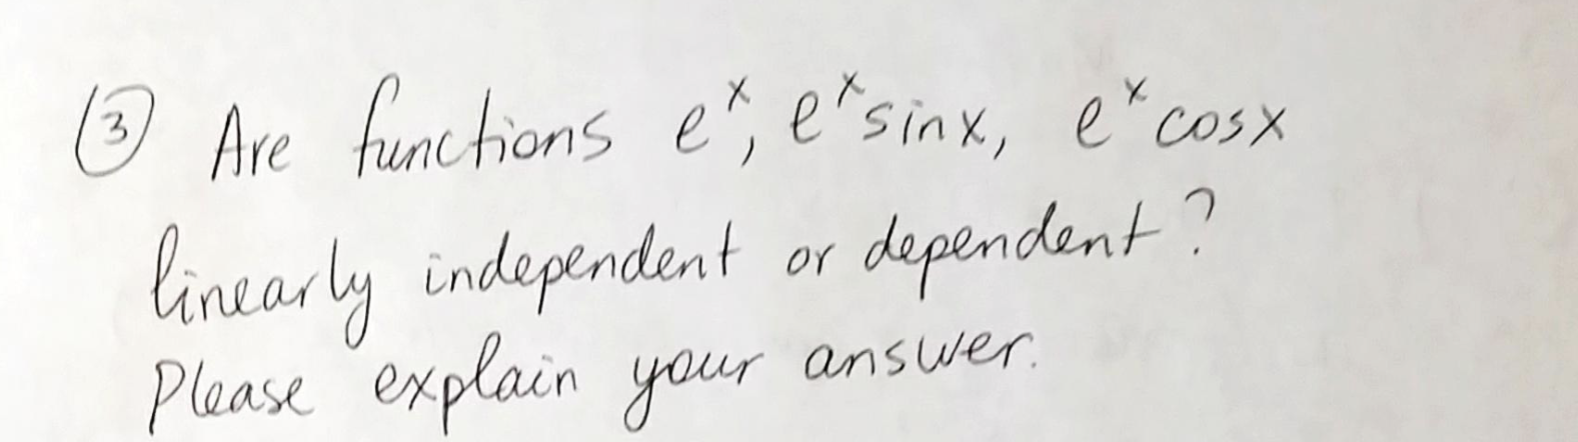 ③ Are functions eˣ, eˣsinx, eˣcosx
linearly independent or dependent?
Please explain your answer.